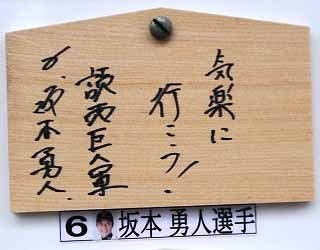 気楽に
行こう!
読売巨人軍
6.坂本勇人
6 坂本 勇人選手